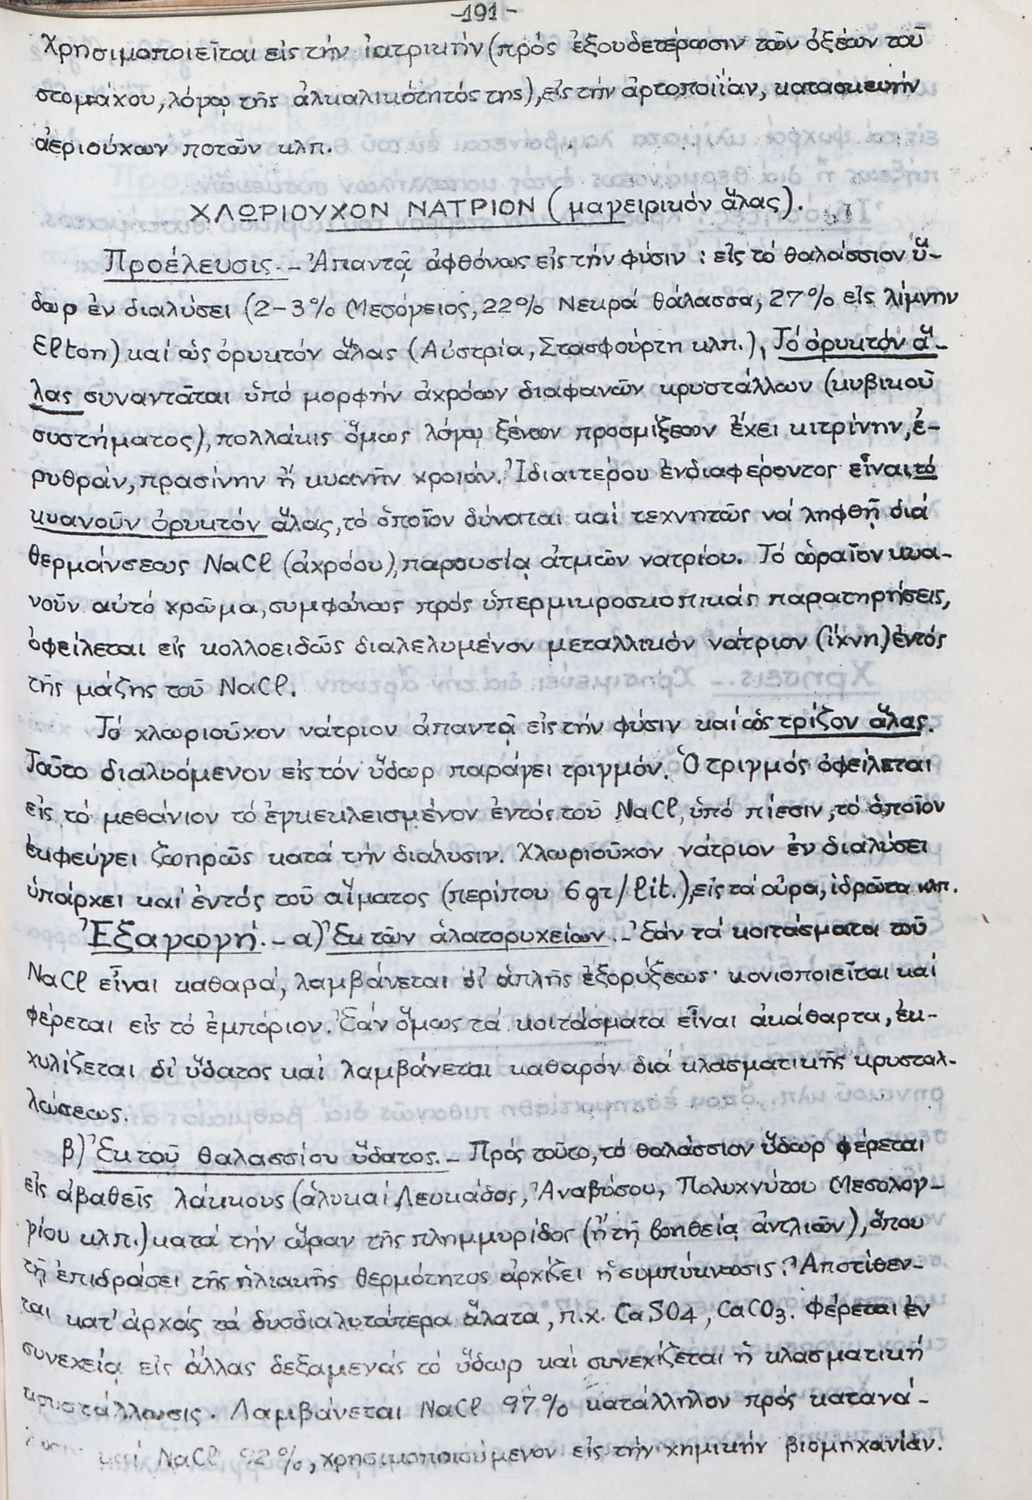 -191-
Χρησιμοποιεῖται εἰς τήν ἰατρικήν (πρός ἐξουδετέρωσιν τῶν ὀξέων τοῦ
στομάχου, λόγῳ τῆς ἀλκαλικότητός της), εἰς τήν ἀρτοποιΐαν, κατασκευήν
ἀεριούχων ποτῶν κλπ.
ΧΛΩΡΙΟΥΧΟΝ ΝΑΤΡΙΟΝ (μαγειρικόν ἅλας).
Προέλευσις.- Ἀπαντᾷ ἀφθόνως εἰς τήν φύσιν : εἰς τό θαλάσσιον ὕ-
δωρ ἐν διαλύσει (2-3% Μεσόγειος, 22% Νεκρά θάλασσα, 27% εἰς λίμνην
Elton) καί ὡς ὀρυκτόν ἅλας (Αὐστρία, Στασφούρτη κλπ.). Τό ὀρυκτόν ἅ-
λας συναντᾶται ὑπό μορφήν ἀχρόων διαφανῶν κρυστάλλων (κυβικοῦ
συστήματος), πολλάκις ὅμως λόγῳ ξένων προσμίξεων ἔχει κιτρίνην, ἐ-
ρυθράν, πρασίνην ἤ κυανῆν χροιάν. Ἰδιαιτέρου ἐνδιαφέροντος εἶναι τό
κυανοῦν ὀρυκτόν ἅλας, τό ὁποῖον δύναται καί τεχνητῶς νά ληφθῇ διά
θερμάνσεως NaCl (ἀχρόου), παρουσίᾳ ἀτμῶν νατρίου. Τό ὡραῖον κυα-
νοῦν αὐτό χρῶμα, συμφώνως πρός ὑπερμικροσκοπικάς παρατηρήσεις,
ὀφείλεται εἰς κολλοειδῶς διαλελυμένον μεταλλικόν νάτριον (ἴχνη) ἐντός
τῆς μάζης τοῦ NaCl.
Τό χλωριοῦχον νάτριον ἀπαντᾷ εἰς τήν φύσιν καί ὡς τρίζον ἅλας.
Τοῦτο διαλυόμενον εἰς τόν ὕδωρ παράγει τριγμόν. Ὁ τριγμός ὀφείλεται
εἰς τό μεθάνιον τό ἐγκεκλεισμένον ἐντός τοῦ NaCl, ὑπό πίεσιν, τό ὁποῖον
ἐκφεύγει ζωηρῶς κατά τήν διάλυσιν. Χλωριοῦχον νάτριον ἐν διαλύσει
ὑπάρχει καί ἐντός τοῦ αἵματος (περίπου 6 gr/lit.), εἰς τά οὖρα, ἱδρῶτα κλπ.
Ἐξαγωγή.- α) Ἐκ τῶν ἁλατορυχείων.- Ἐάν τά κοιτάσματα τοῦ
NaCl εἶναι καθαρά, λαμβάνεται δι' ἁπλῆς ἐξορύξεως· κονιοποιεῖται καί
φέρεται εἰς τό ἐμπόριον. Ἐάν ὅμως τά κοιτάσματα εἶναι ἀκάθαρτα, ἐκ-
χυλίζεται δι' ὕδατος καί λαμβάνεται καθαρόν διά κλασματικῆς κρυσταλ-
λώσεως.
β) Ἐκ τοῦ θαλασσίου ὕδατος.- Πρός τοῦτο, τό θαλάσσιον ὕδωρ φέρεται
εἰς ἀβαθεῖς λάκκους (ἁλυκαί Λευκάδος, Ἀναβύσου, Πολυχνίτου Μεσολογ-
γίου κλπ.) κατά τήν ὥραν τῆς πλημμυρίδος (ἤ τῇ βοηθείᾳ ἀντλιῶν), ὅπου
τῇ ἐπιδράσει τῆς ἡλιακῆς θερμότητος ἀρχίζει ἡ συμπύκνωσις. Ἀποτίθεν-
ται κατ' ἀρχάς τά δυσδιαλυτώτερα ἅλατα, π.χ. CaSO4, CaCO3. Φέρεται ἐν
συνεχείᾳ εἰς ἄλλας δεξαμενάς τό ὕδωρ καί συνεχίζεται ἡ κλασματική
κρυστάλλωσις. Λαμβάνεται NaCl 97% κατάλληλον πρός κατανά-
λωσιν καί NaCl 92%, χρησιμοποιούμενον εἰς τήν χημικήν βιομηχανίαν.